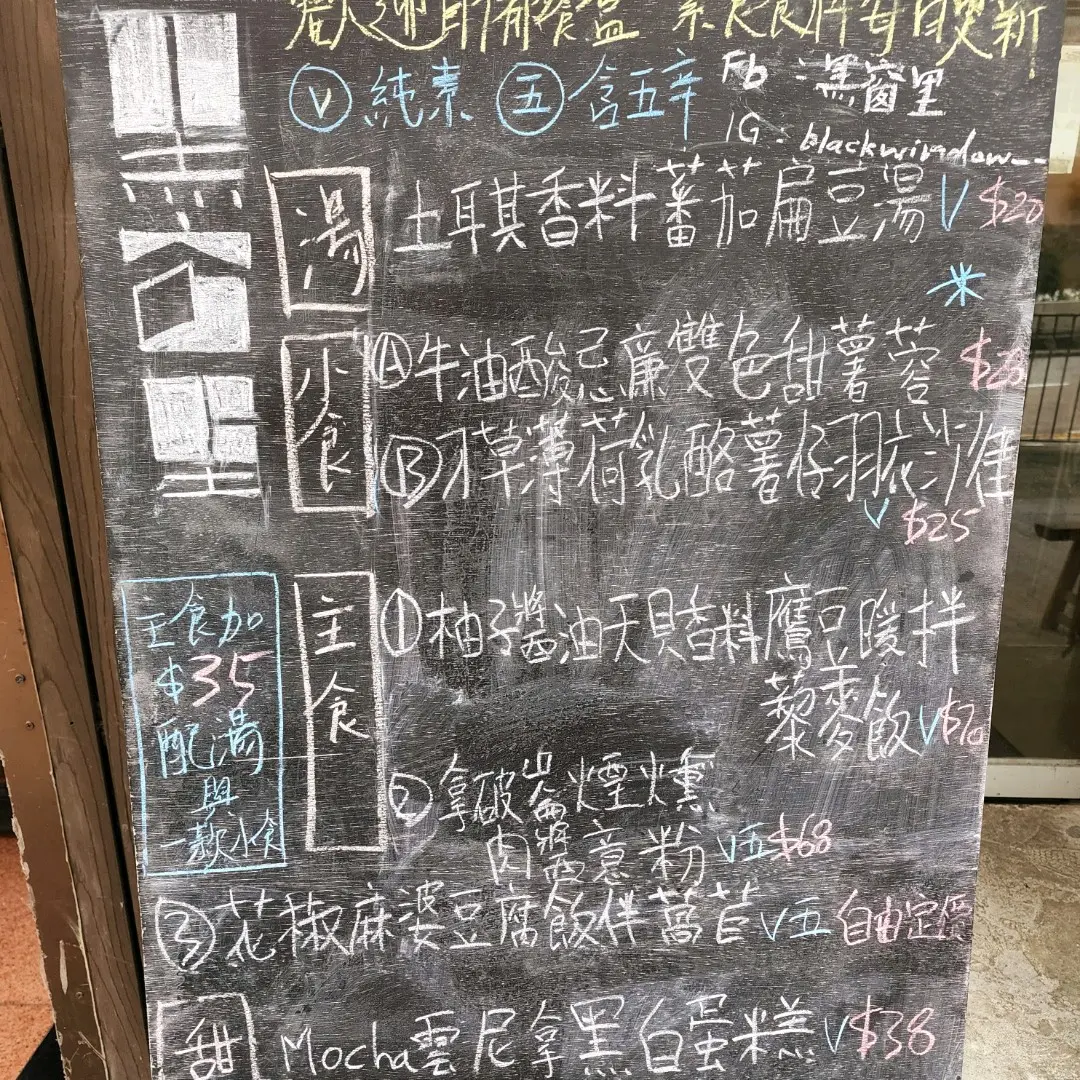 歡迎自備餐盒 素食食料每日更新
Ⓥ 純素 ㊄ 含五辛 Fb : 黑窗里
IG : blackwindow__
黑窗里
湯
土耳其香料蕃茄扁豆湯 V $20
*
小食
Ⓐ牛油酸忌廉雙色甜薯蓉 $28
Ⓑ刁草薄荷乳酪薯仔羽衣沙律
V $25
主食
①柚子醬油天貝香料鷹豆暖拌
藜麥飯 V $70
②拿破崙煙燻
肉醬意粉 V五 $68
③花椒麻婆豆腐飯伴萵苣 V五 自由定價
主食加
$35
配湯
與
一款小食
甜
Mocha雲尼拿黑白蛋糕 V $38